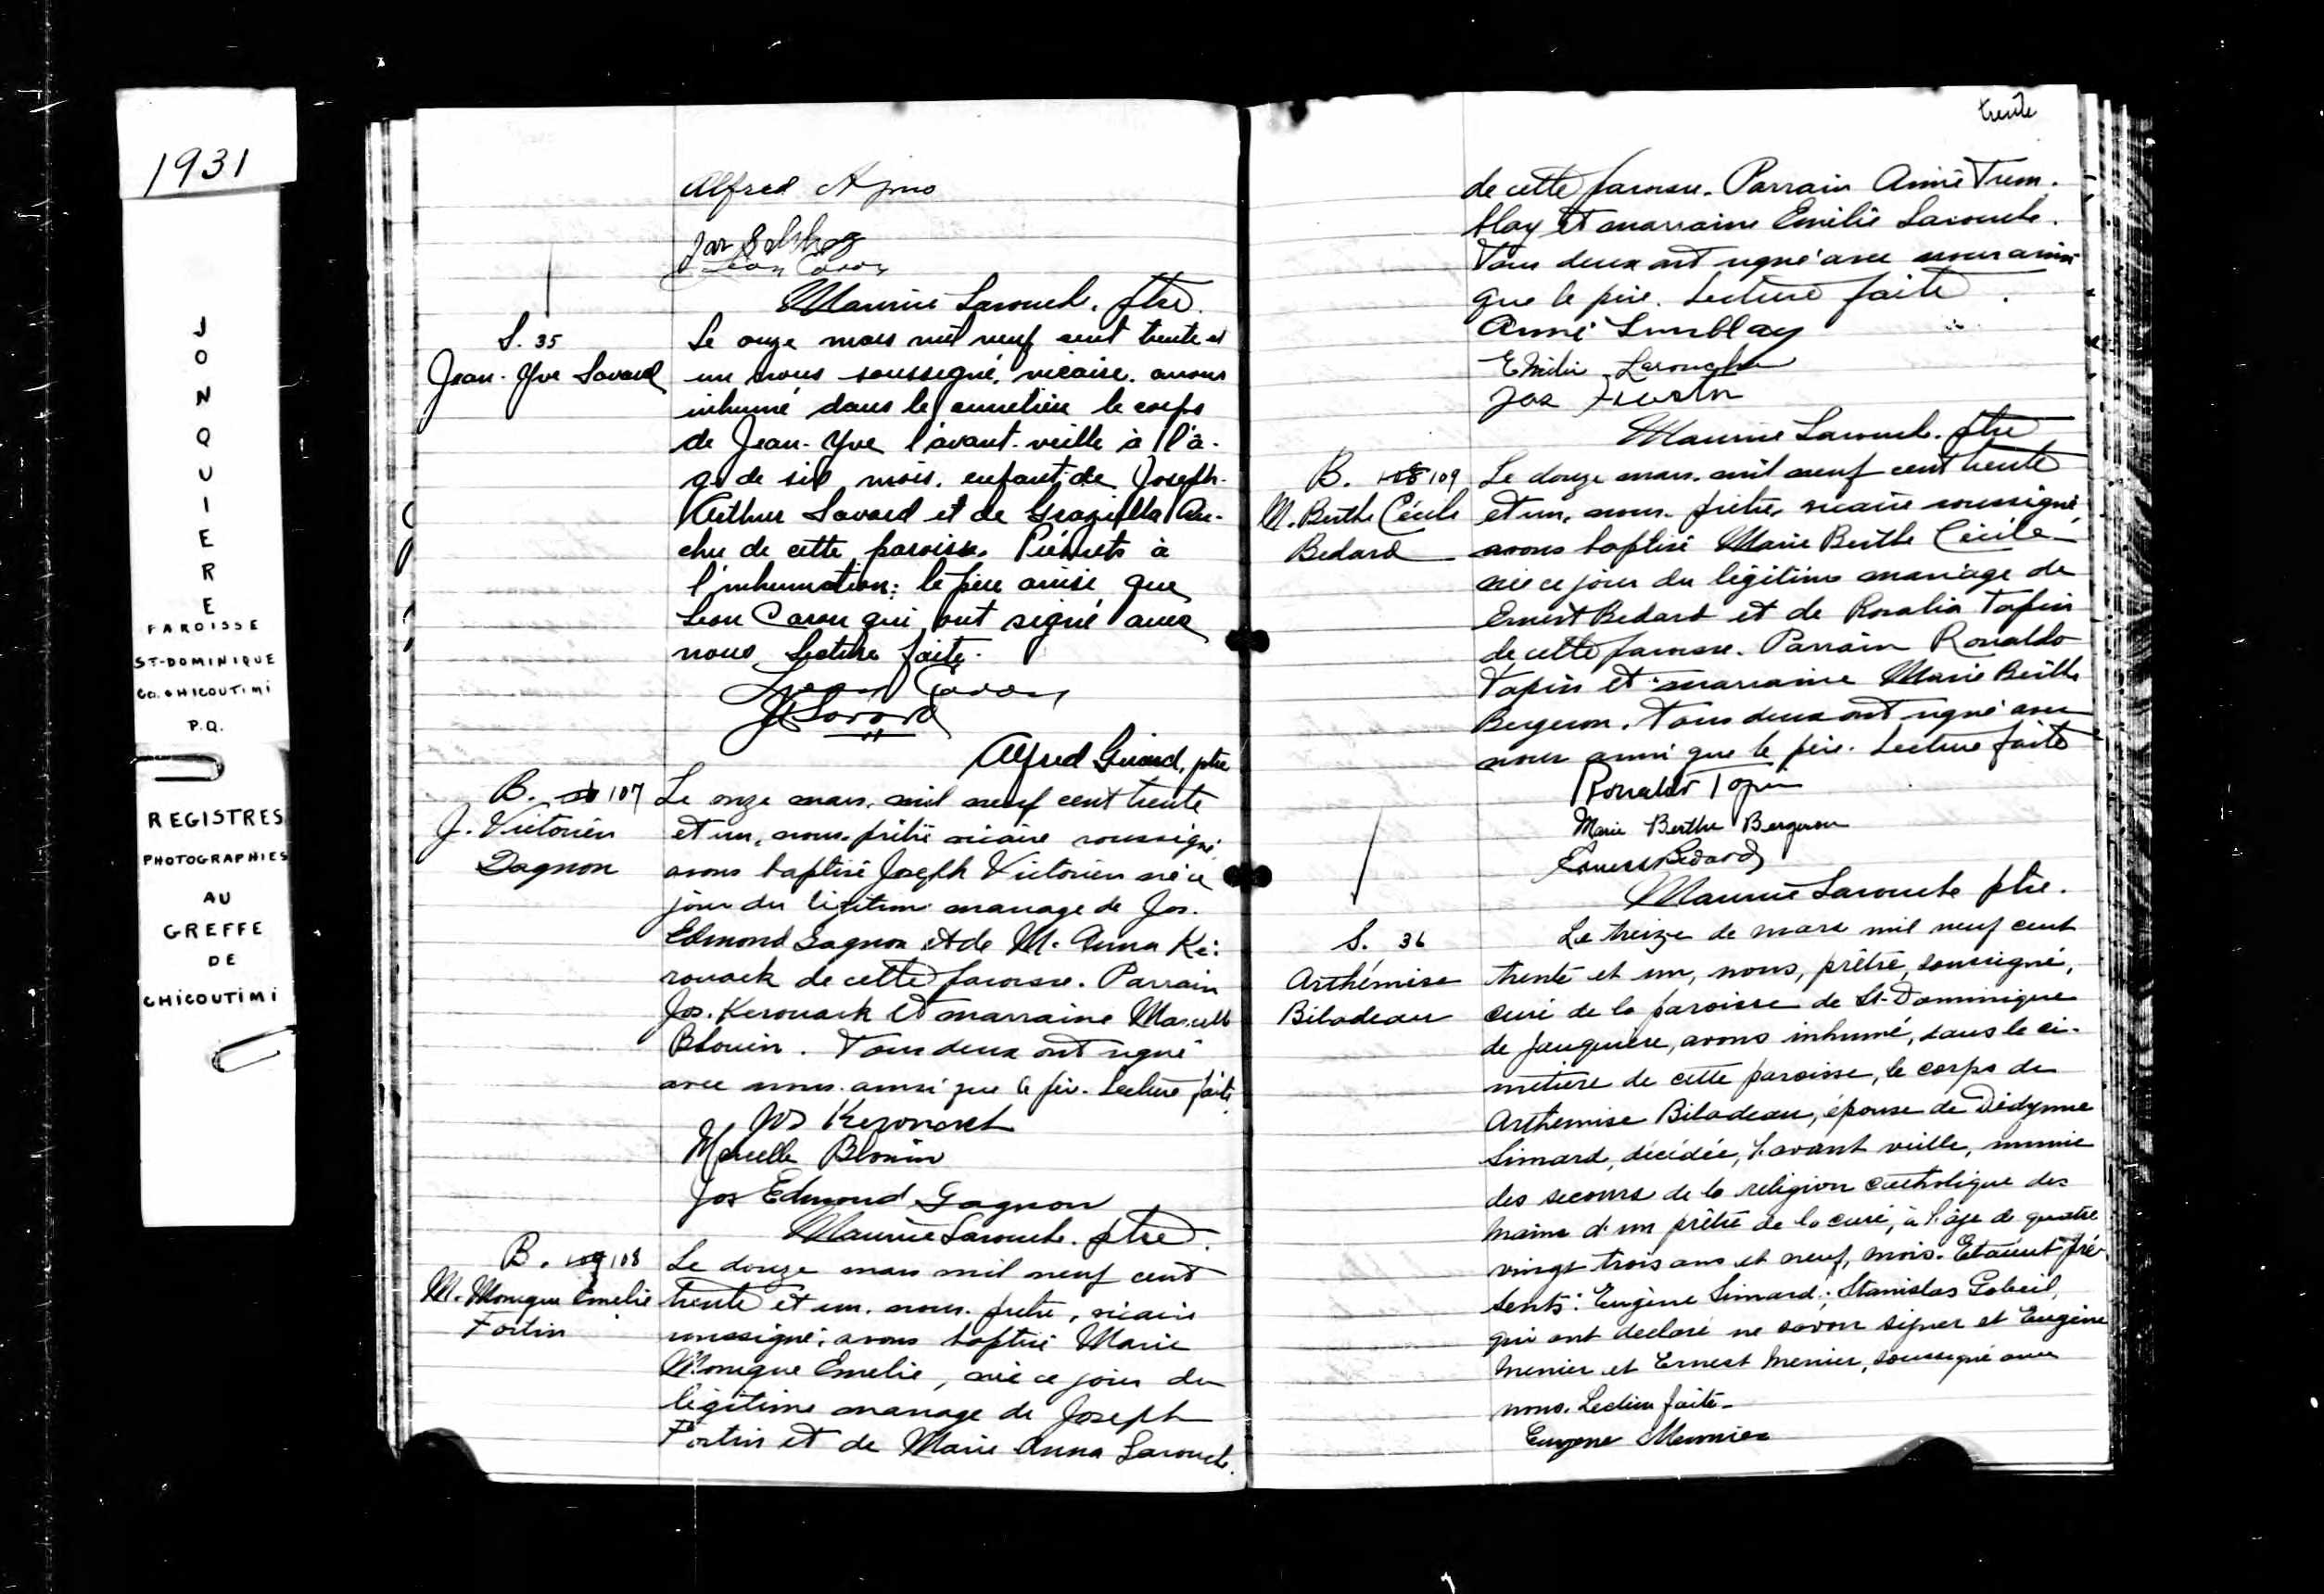 1931
JONQUIERE
PAROISSE
ST-DOMINIQUE
CO. CHICOUTIMI
P.Q.
REGISTRES
PHOTOGRAPHIES
AU
GREFFE
DE
CHICOUTIMI
Alfred
Jos
Léon Caron
Maurice Larouche. ptre.
S. 35
Jean-Yve Savard
Le onze mars mil neuf cent trente et
un nous soussigné, vicaire, avons
inhumé dans le cimetière le corps
de Jean-Yve l'avant-veille à l'â-
ge de six mois, enfant de Joseph-
Arthur Savard et de Graziella Au-
cher de cette paroisse. Présents à
l'inhumation: le père ainsi que
Léon Caron qui ont signé avec
nous Lecture faite.
Léon Caron
JA Savard
Alfred Girard, ptre
B. 107
J. Victorien
Gagnon
Le onze mars, mil neuf cent trente
et un, nous, prêtre vicaire soussigné
avons baptisé Joseph Victorien né ce
jour du légitime mariage de Jos.
Edmond Gagnon et de M. Anna Ké-
rouack de cette paroisse. Parrain
Jos. Kerouack et marraine Marcelle
Blouin. Tous deux ont signé
avec nous ainsi que le père. Lecture faite
Jos Kerouack
Marcelle Blouin
Jos Edmond Gagnon
Maurice Larouche. ptre.
B. 109 108
M. Monique Emelie
Fortin
Le douze mars mil neuf cent
trente et un, nous, pretre, vicaire
soussigné, avons baptisé Marie
Monique Emelie, née ce jour du
légitime mariage de Joseph
Fortin et de Marie Anna Larouche
trente
de cette paroisse. Parrain Aimé Trem-
blay et marraine Emilie Larouche.
Tous deux ont signé avec nous ainsi
que le père. Lecture faite.
Aimé Tremblay
Emilie Larouche
Jos Fortin
Maurice Larouche. ptre
B. 108 109
M. Berthe Cécile
Bedard
Le douze mars, mil neuf cent trente
et un, nous, prêtre, vicaire soussigné,
avons baptisé Marie Berthe Cécile
née ce jour du légitime mariage de
Ernest Bedard et de Rosalia Tapin
de cette paroisse. Parrain Ronaldo
Tapin et marraine Marie Berthe
Bergeron. Tous deux ont signé avec
nous ainsi que le père. Lecture faite
Ronaldo Tapin
Marie Berthe Bergeron
Ernest Bedard
Maurice Larouche ptre.
S. 36
Arthémise
Bilodeau
Le treize de mars mil neuf cent
trente et un, nous, prêtre, soussigné,
curé de la paroisse de St-Dominique
de Jonquière, avons inhumé, dans le ci-
metière de cette paroisse, le corps de
Arthemise Bilodeau, épouse de Didyme
Simard, décédée, l'avant veille, munie
des secours de la religion catholique des
mains d'un prêtre de la curé, à l'âge de quatre
vingt trois ans et neuf, mois. Etaient pré-
sents: Eugène Simard; Stanislas Gobeil,
qui ont déclaré ne savoir signer et Eugène
Menier et Ernest Menier, soussigné avec
nous. Lecture faite.
Eugene Meunier